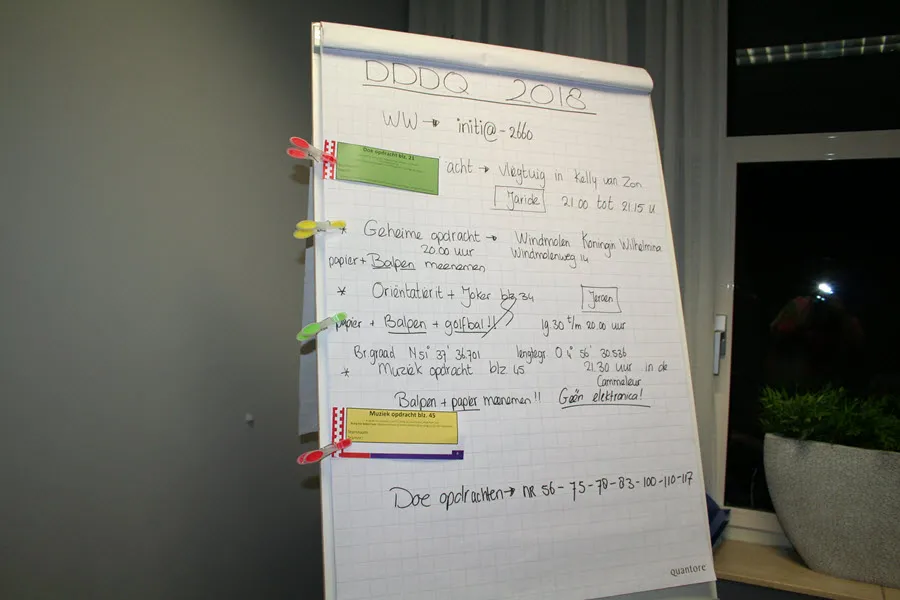 DDDQ 2018
WW → initi@-2660
Doe opdracht blz. 21
acht → Vliegtuig in Kelly van Zon
Jaride 21.00 tot 21.15 u
* Geheime opdracht → Windmolen Koningin Wilhelmina
20.00 uur Windmolenweg 14
papier + Balpen meenemen
* Oriëntatierit + Joker blz 34 Jeroen
papier + Balpen + golfbal!! 19.30 t/m 20.00 uur
Br.graad N 51° 37' 36.701 lengtegr. O 4° 56' 30.536
* Muziek opdracht blz 45 21.30 uur in de
Cammeleur
Balpen + papier meenemen!! Geën elektronica!
Muziek opdracht blz. 45
Doe opdrachten → nr 56 - 75 - 78 - 83 - 100 - 110 - 117
quantore